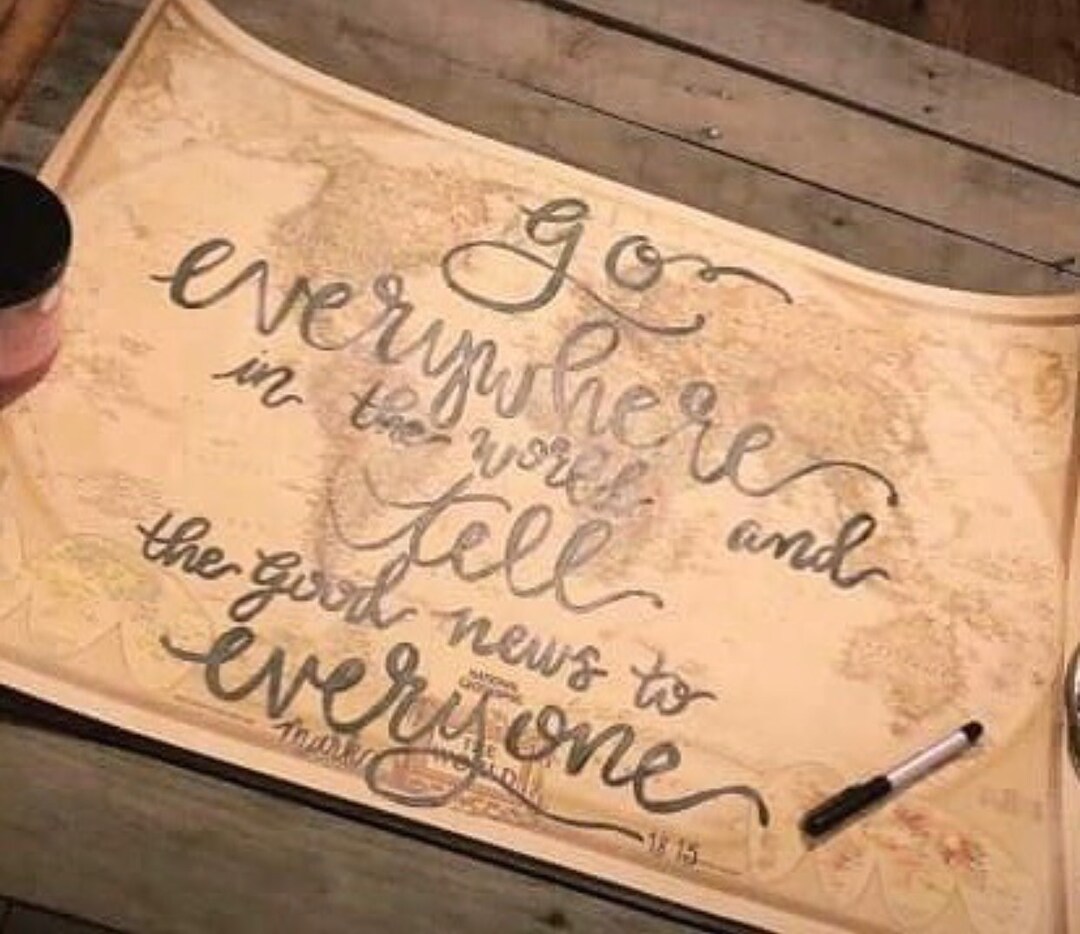 go
everywhere
in the world and
tell
the good news to
everyone
NATIONAL
THE
WORLD
mark 18:15